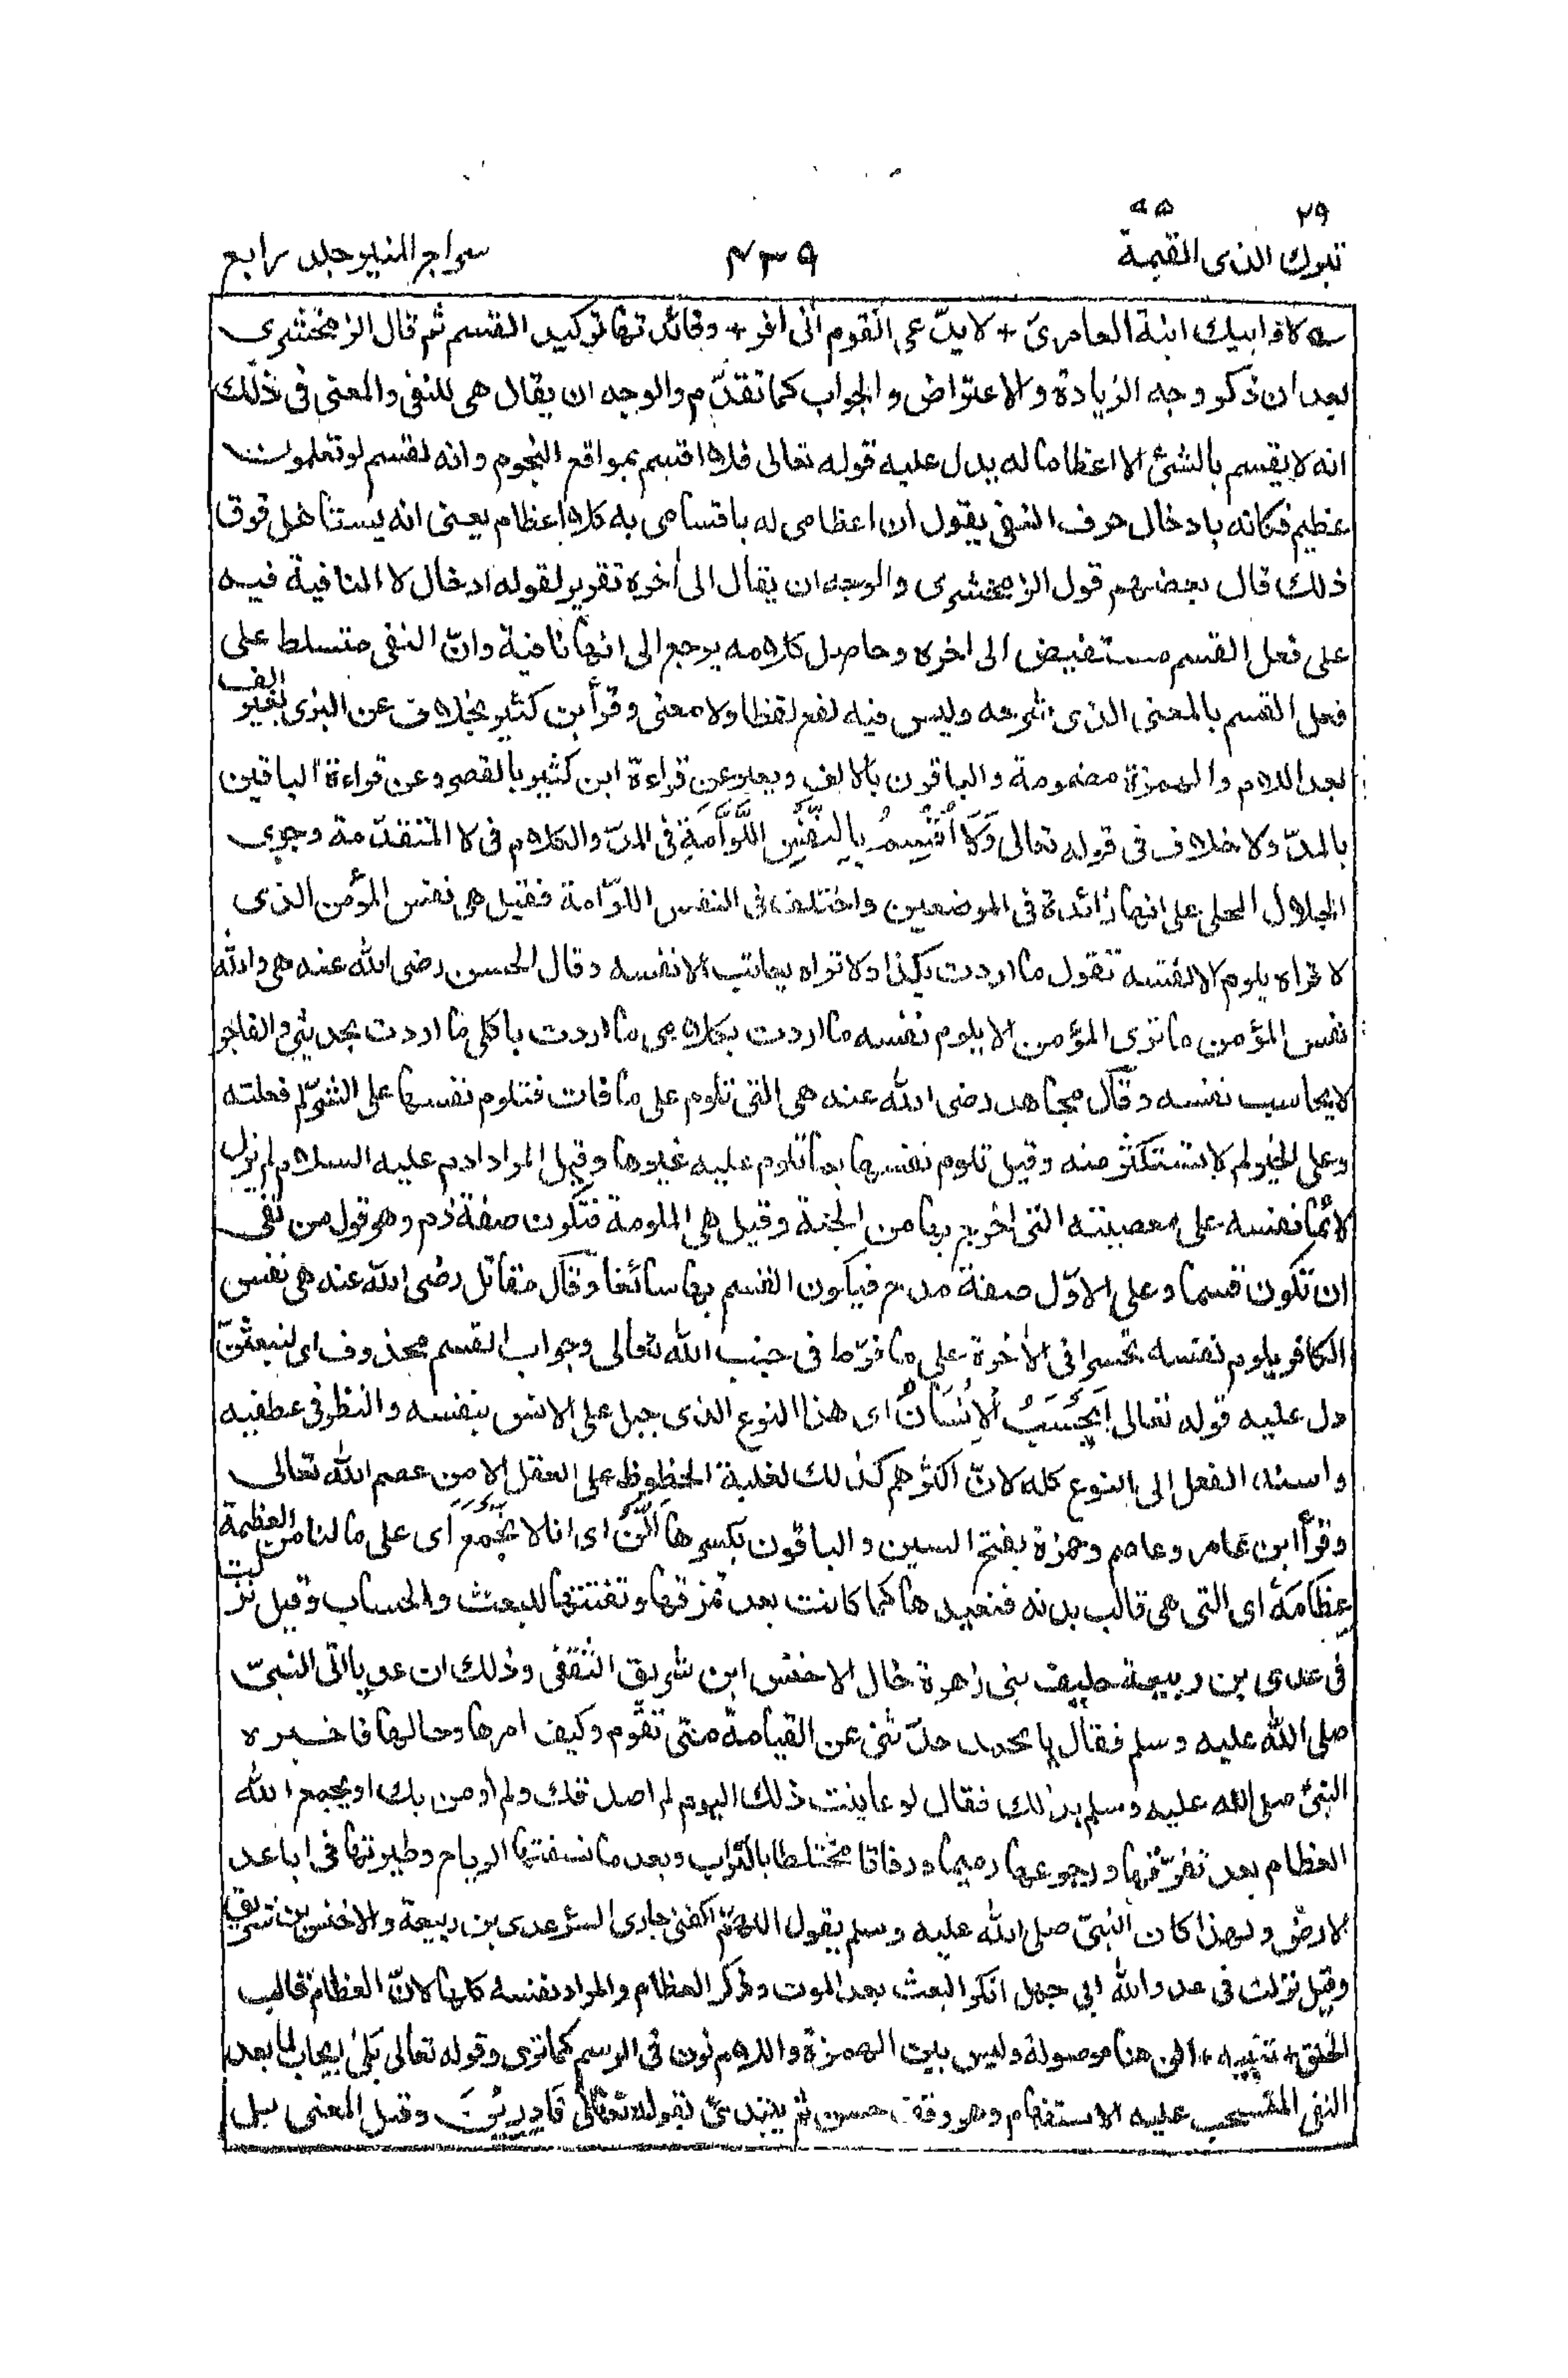 ٢٩ ٧٥
تبرك الذى القيمة ٤٣٩ سراج المنير جلد رابع
لا وابيك ابنة العامرىّ + لا يدّعى القوم انى افر + وفائدتها توكيد القسم ثم قال الزمخشرى
بعد ان ذكر وجه الزيادة والاعتراض والجواب كما تقدّم والوجه ان يقال هى للنفى والمعنى فى ذلك
انه لا يقسم بالشئ الا اعظاما له يدل عليه قوله تعالى فلا اقسم بمواقع النجوم وانه لقسم لو تعلمون
عظيم فكانه بادخال حرف النفى يقول ان اعظامى له باقسامى به كلا اعظام يعنى انه يستاهل فوق
ذلك قال بعضهم قول الزمخشرى والوجه ان يقال الى اخره تقرير لقوله ادخال لا النافية فيه
على فعل القسم مستفيض الى اخره وحاصل كلامه يرجع الى انها نافية وانّ النفى متسلط على
فعل القسم بالمعنى الذى شرحه وليس فيه لفع لفظا ولا معنى وقرأ ابن كثير بخلاف عن البزى بغير الف
بعد اللام والهمزة مضمومة والباقون بالالف ويعبر عن قراءة ابن كثير بالقصر وعن قراءة الباقين
بالمدّ ولا خلاف فى قوله تعالى وَلَا أُقْسِمُ بِالنَّفْسِ اللَّوَّامَةِ فى المدّ والكلام فى لا المتقدّمة وجرى
الجلال المحلى على انها زائدة فى الموضعين واختلف فى النفس اللوّامة فقيل هى نفس المؤمن الذى
لا تراه يلوم الا نفسه تقول ما اردت بكذا ولا تراه يعاتب الا نفسه وقال الحسن رضى الله عنه هى والله
نفس المؤمن ما ترى المؤمن الا يلوم نفسه ما اردت بكلامى ما اردت باكلى ما اردت بحديثى والفاجر
لا يحاسب نفسه وقال مجاهد رضى الله عنه هى التى تلوم على ما فات فتلوم نفسها على الشرّ لم فعلته
وعلى الخير لم لا تستكثر منه وقيل تلوم نفسها بما تلوم عليه غيرها وقيل المراد ادم عليه السلام لم يزل
لائما نفسه على معصيته التى اخرج بها من الجنة وقيل هى الملومة فتكون صفة ذم وهو قول من نفى
ان تكون قسما وعلى الاوّل صفة مدح فيكون القسم بها سائغا وقال مقاتل رضى الله عنه هى نفس
الكافر يلوم نفسه تحسرا فى الاخرة على ما فرّط فى جنب الله تعالى وجواب القسم محذوف اى لنبعثنّ
دل عليه قوله تعالى اَيَحْسَبُ الْاِنْسَانُ اى هذا النوع الذى جبل على الانس بنفسه والنظر فى عطفيه
واسند الفعل الى النوع كله لانّ اكثرهم كذلك لغلبة الحظوظ على العقل الا من عصم الله تعالى
وقرأ ابن عامر وعاصم وحمزة بفتح السين والباقون بكسرها اَلَّنْ اى انا لا نَجْمَعَ اى على مالنا من العظمة
عِظَامَهٗ اى التى هى قالب بدنه فنعيدها كما كانت بعد تمزقها وتفتتها للبعث والحساب وقيل نزلت
فى عدى بن ربيعة حليف بنى زهرة خال الاخنس ابن شريق الثقفى وذلك ان عديا اتى النبىّ
صلى الله عليه وسلم فقال يا محمد حدّثنى عن القيامة متى تقوم وكيف امرها وحالها فاخبره
النبىّ صلى الله عليه وسلم بذلك فقال لو عاينت ذلك اليوم لم اصدقك ولم اومن بك او يجمع الله
العظام بعد تفرّقها ورجوعها رميما ورفاتا مختلطا بالتراب وبعد ما نسفتها الرياح وطيرتها فى اباعد
الارض ولهذا كان النبىّ صلى الله عليه وسلم يقول اللهمّ اكفنى جارى السوء عدى بن ربيعة والاخنس بن شريق
وقيل نزلت فى عدو الله ابى جهل انكر البعث بعد الموت وذكر العظام والمراد نفسه كلها لانّ العظام قالب
الخلق + تنبيه + الن هنا موصولة وليس بين الهمزة واللام نون فى الرسم كما ترى وقوله تعالى بَلٰى ايجاب لما بعد
النفى المنسحب عليه الاستفهام وهو وقف حسن ثم يبتدئ بقوله تعالى قَادِرِيْنَ وقيل المعنى بل